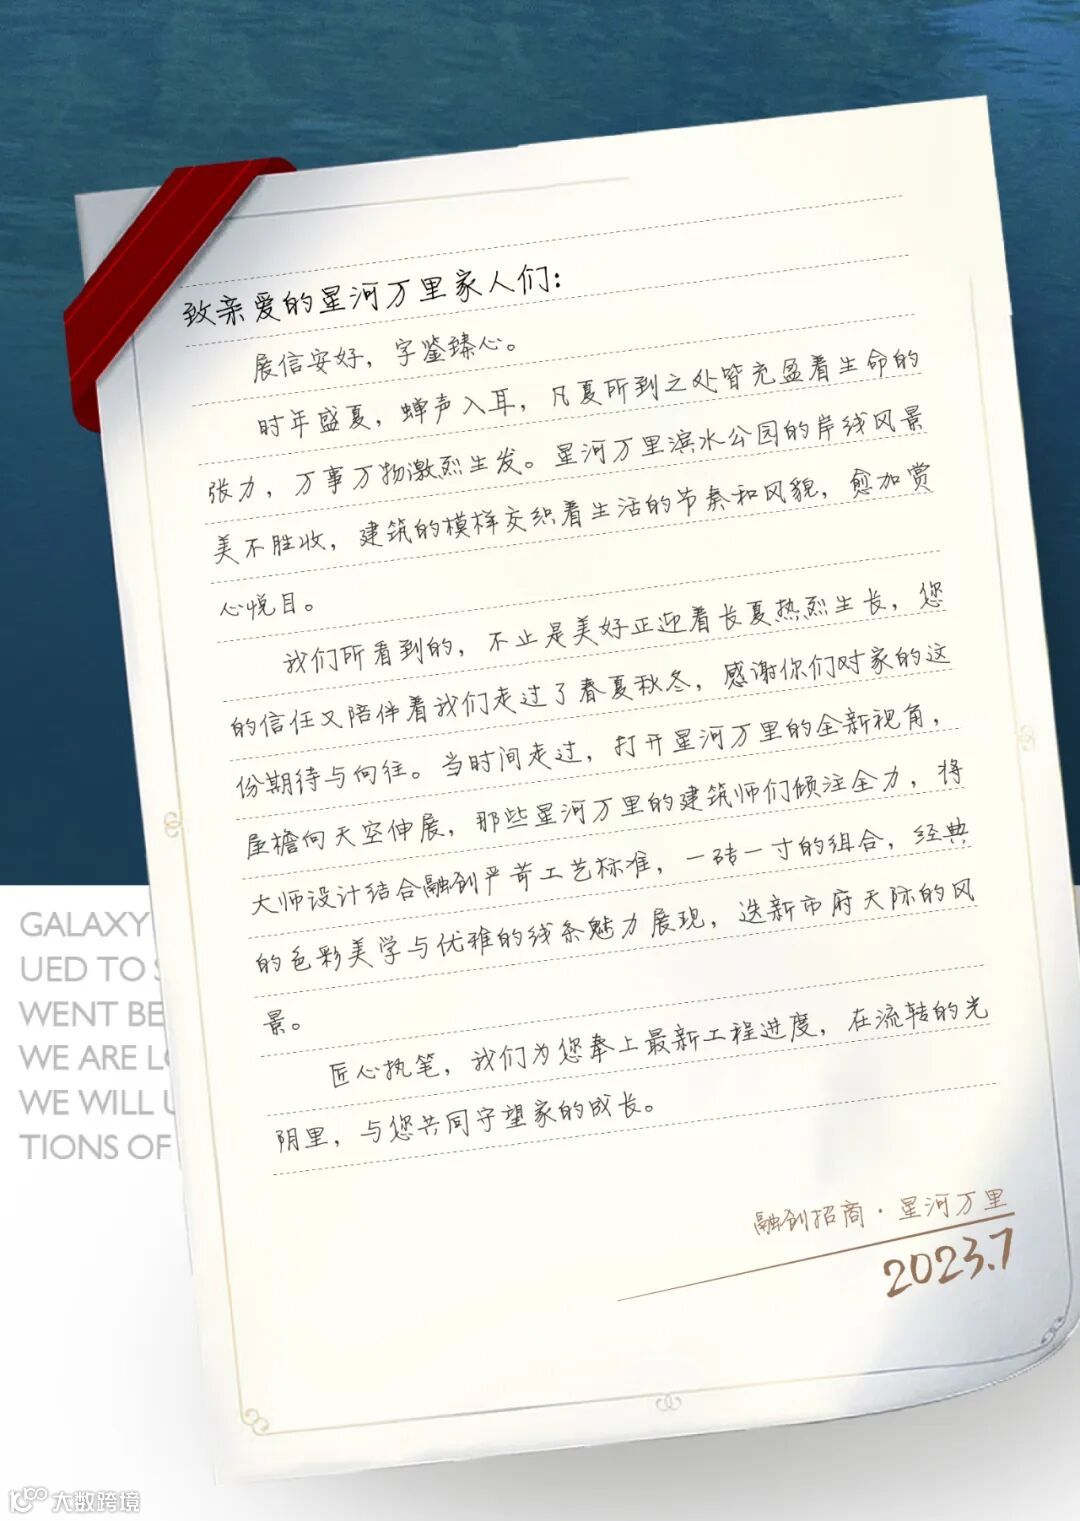 致亲爱的星河万里家人们：
展信安好，字鉴臻心。
时年盛夏，蝉声入耳，凡夏所到之处皆充盈着生命的
张力，万事万物激烈生发。星河万里滨水公园的岸线风景
美不胜收，建筑的模样交织着生活的节奏和风貌，愈加赏
心悦目。
我们所看到的，不止是美好正迎着长夏热烈生长，您
的信任又陪伴着我们走过了春夏秋冬，感谢你们对家的这
份期待与向往。当时间走过，打开星河万里的全新视角，
屋檐向天空伸展，那些星河万里的建筑师们倾注全力，将
大师设计结合融创严苛工艺标准，一砖一寸的组合，经典
的色彩美学与优雅的线条魅力展现，迭新市府天际的风
景。
匠心执笔，我们为您奉上最新工程进度，在流转的光
阴里，与您共同守望家的成长。
融创招商·星河万里
2023.7
GALAXY
UED TO S
WENT BE
WE ARE LO
WE WILL U
TIONS OF
大数跨境